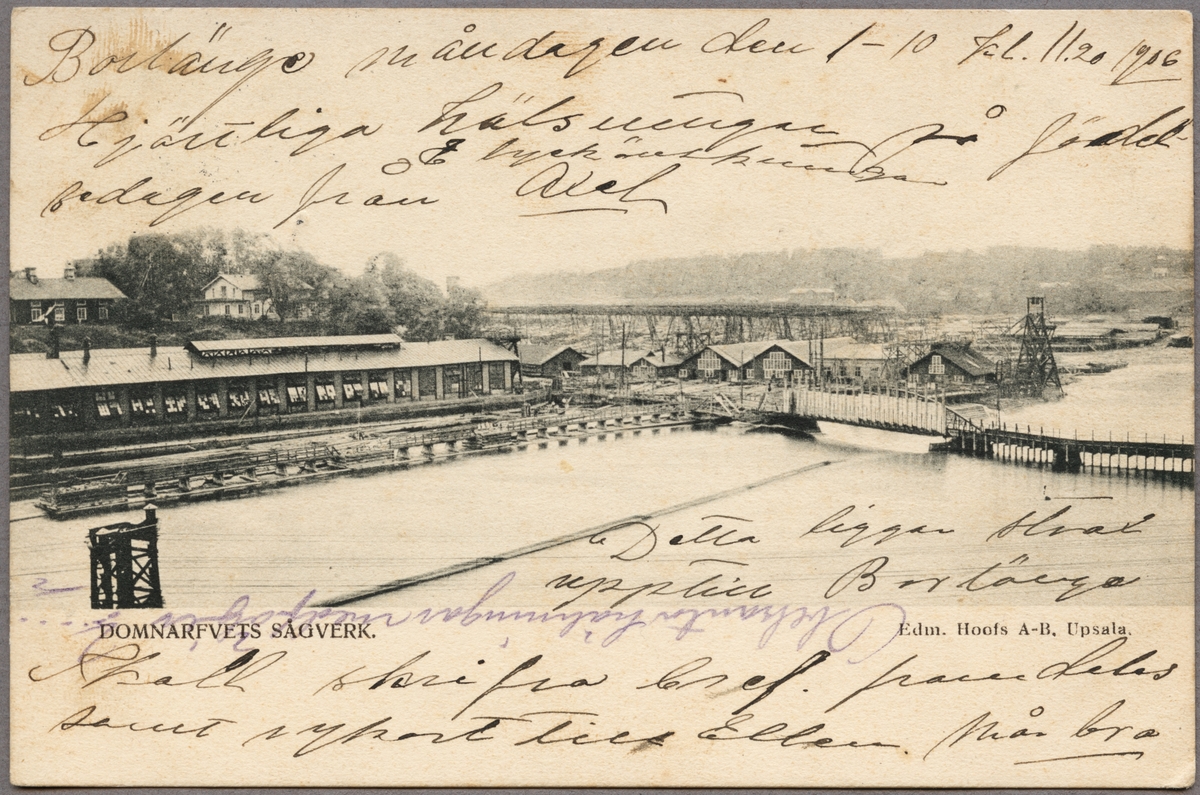 Borlänge måndagen den 1-10 kl. 11.20 1906
Hjärtliga hälsningar på födel-
& lyckönskningar
sedagen från Axel
Detta ligger strax
upptill Borlänge
Obekanta hälsningar medföljer
DOMNARFVETS SÅGVERK.
Edm. Hoofs A-B, Upsala.
Skall skrifva bref. framdeles
samt vykort till Ellen. Mår bra